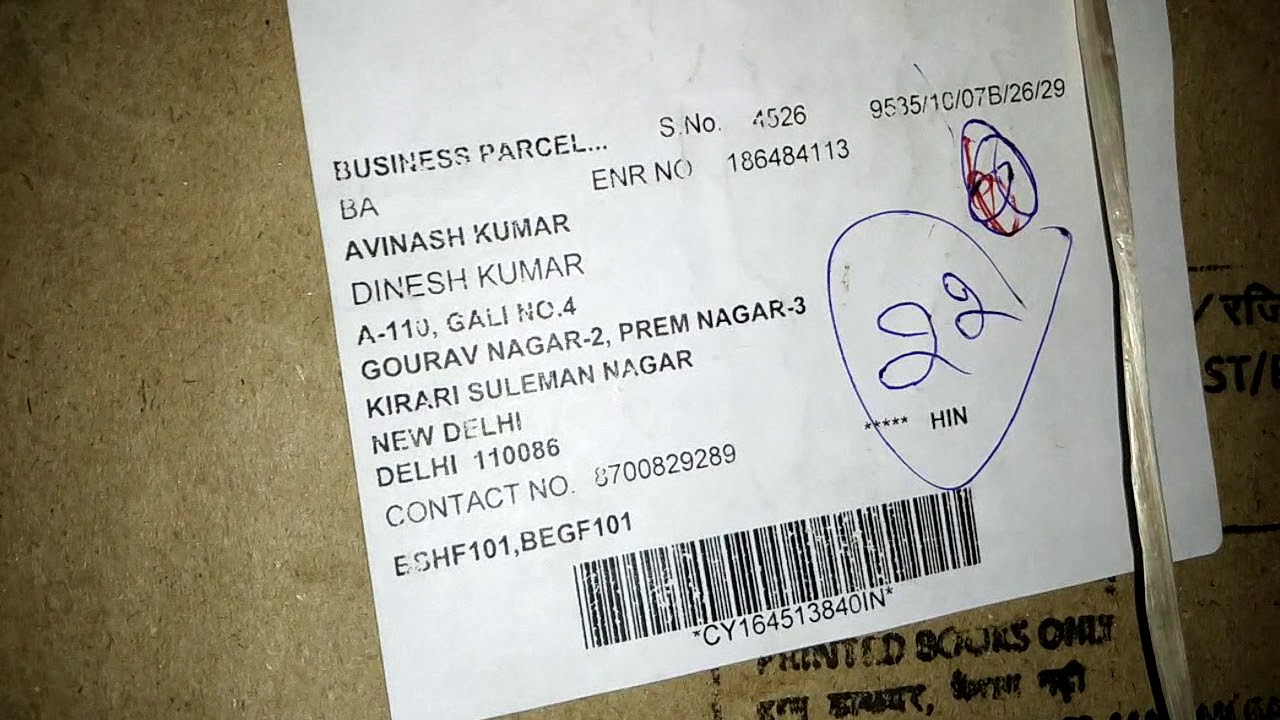 BUSINESS PARCEL... S.No. 4526 9535/10/07B/26/29
BA ENR NO 186484113
AVINASH KUMAR
DINESH KUMAR
A-110, GALI NO.4
GOURAV NAGAR-2, PREM NAGAR-3
KIRARI SULEMAN NAGAR
NEW DELHI
DELHI 110086
CONTACT NO. 8700829289
ESHF101,BEGF101
22
***** HIN
*CY164513840IN*
/ रजि
ST/
PRINTED BOOKS ONLY